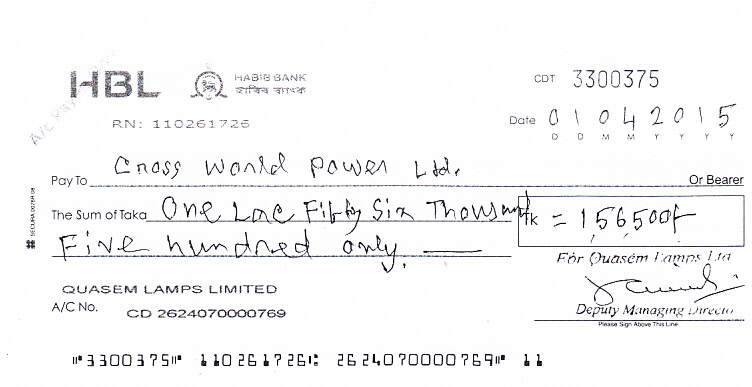 HBL HABIB BANK
হাবিব ব্যাংক
CDT 3300375
A/C Pay
RN: 110261726
Date 01042015
D D M M Y Y Y Y
Pay To Cross World Power Ltd. Or Bearer
The Sum of Taka One Lac Fifty Six Thousand
Tk = 1,56,500/-
Five hundred only.
For Quasem Lamps Ltd
QUASEM LAMPS LIMITED
A/C No. CD 2624070000769
Deputy Managing Directo
Please Sign Above This Line
SECURA 00789 08
⑈3300375⑈ 110261726⑆ 2624070000769⑈ 11